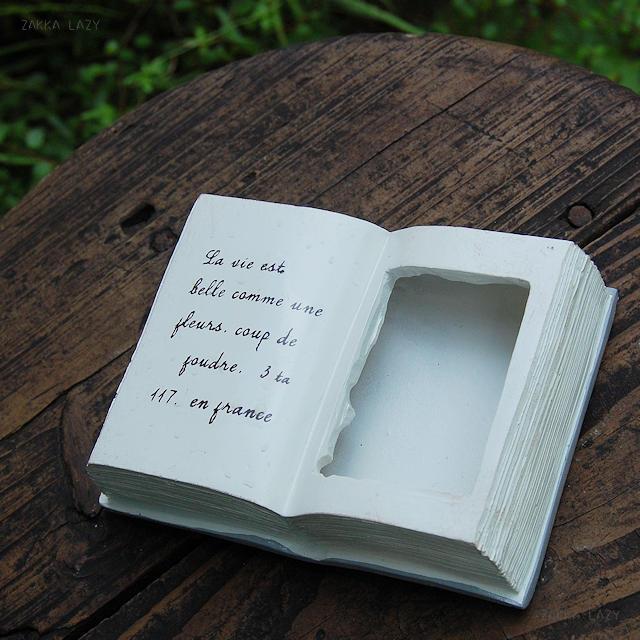 ZAKKA LAZY
La vie est
belle comme une
fleurs. coup de
foudre. 3 ta
117. en france